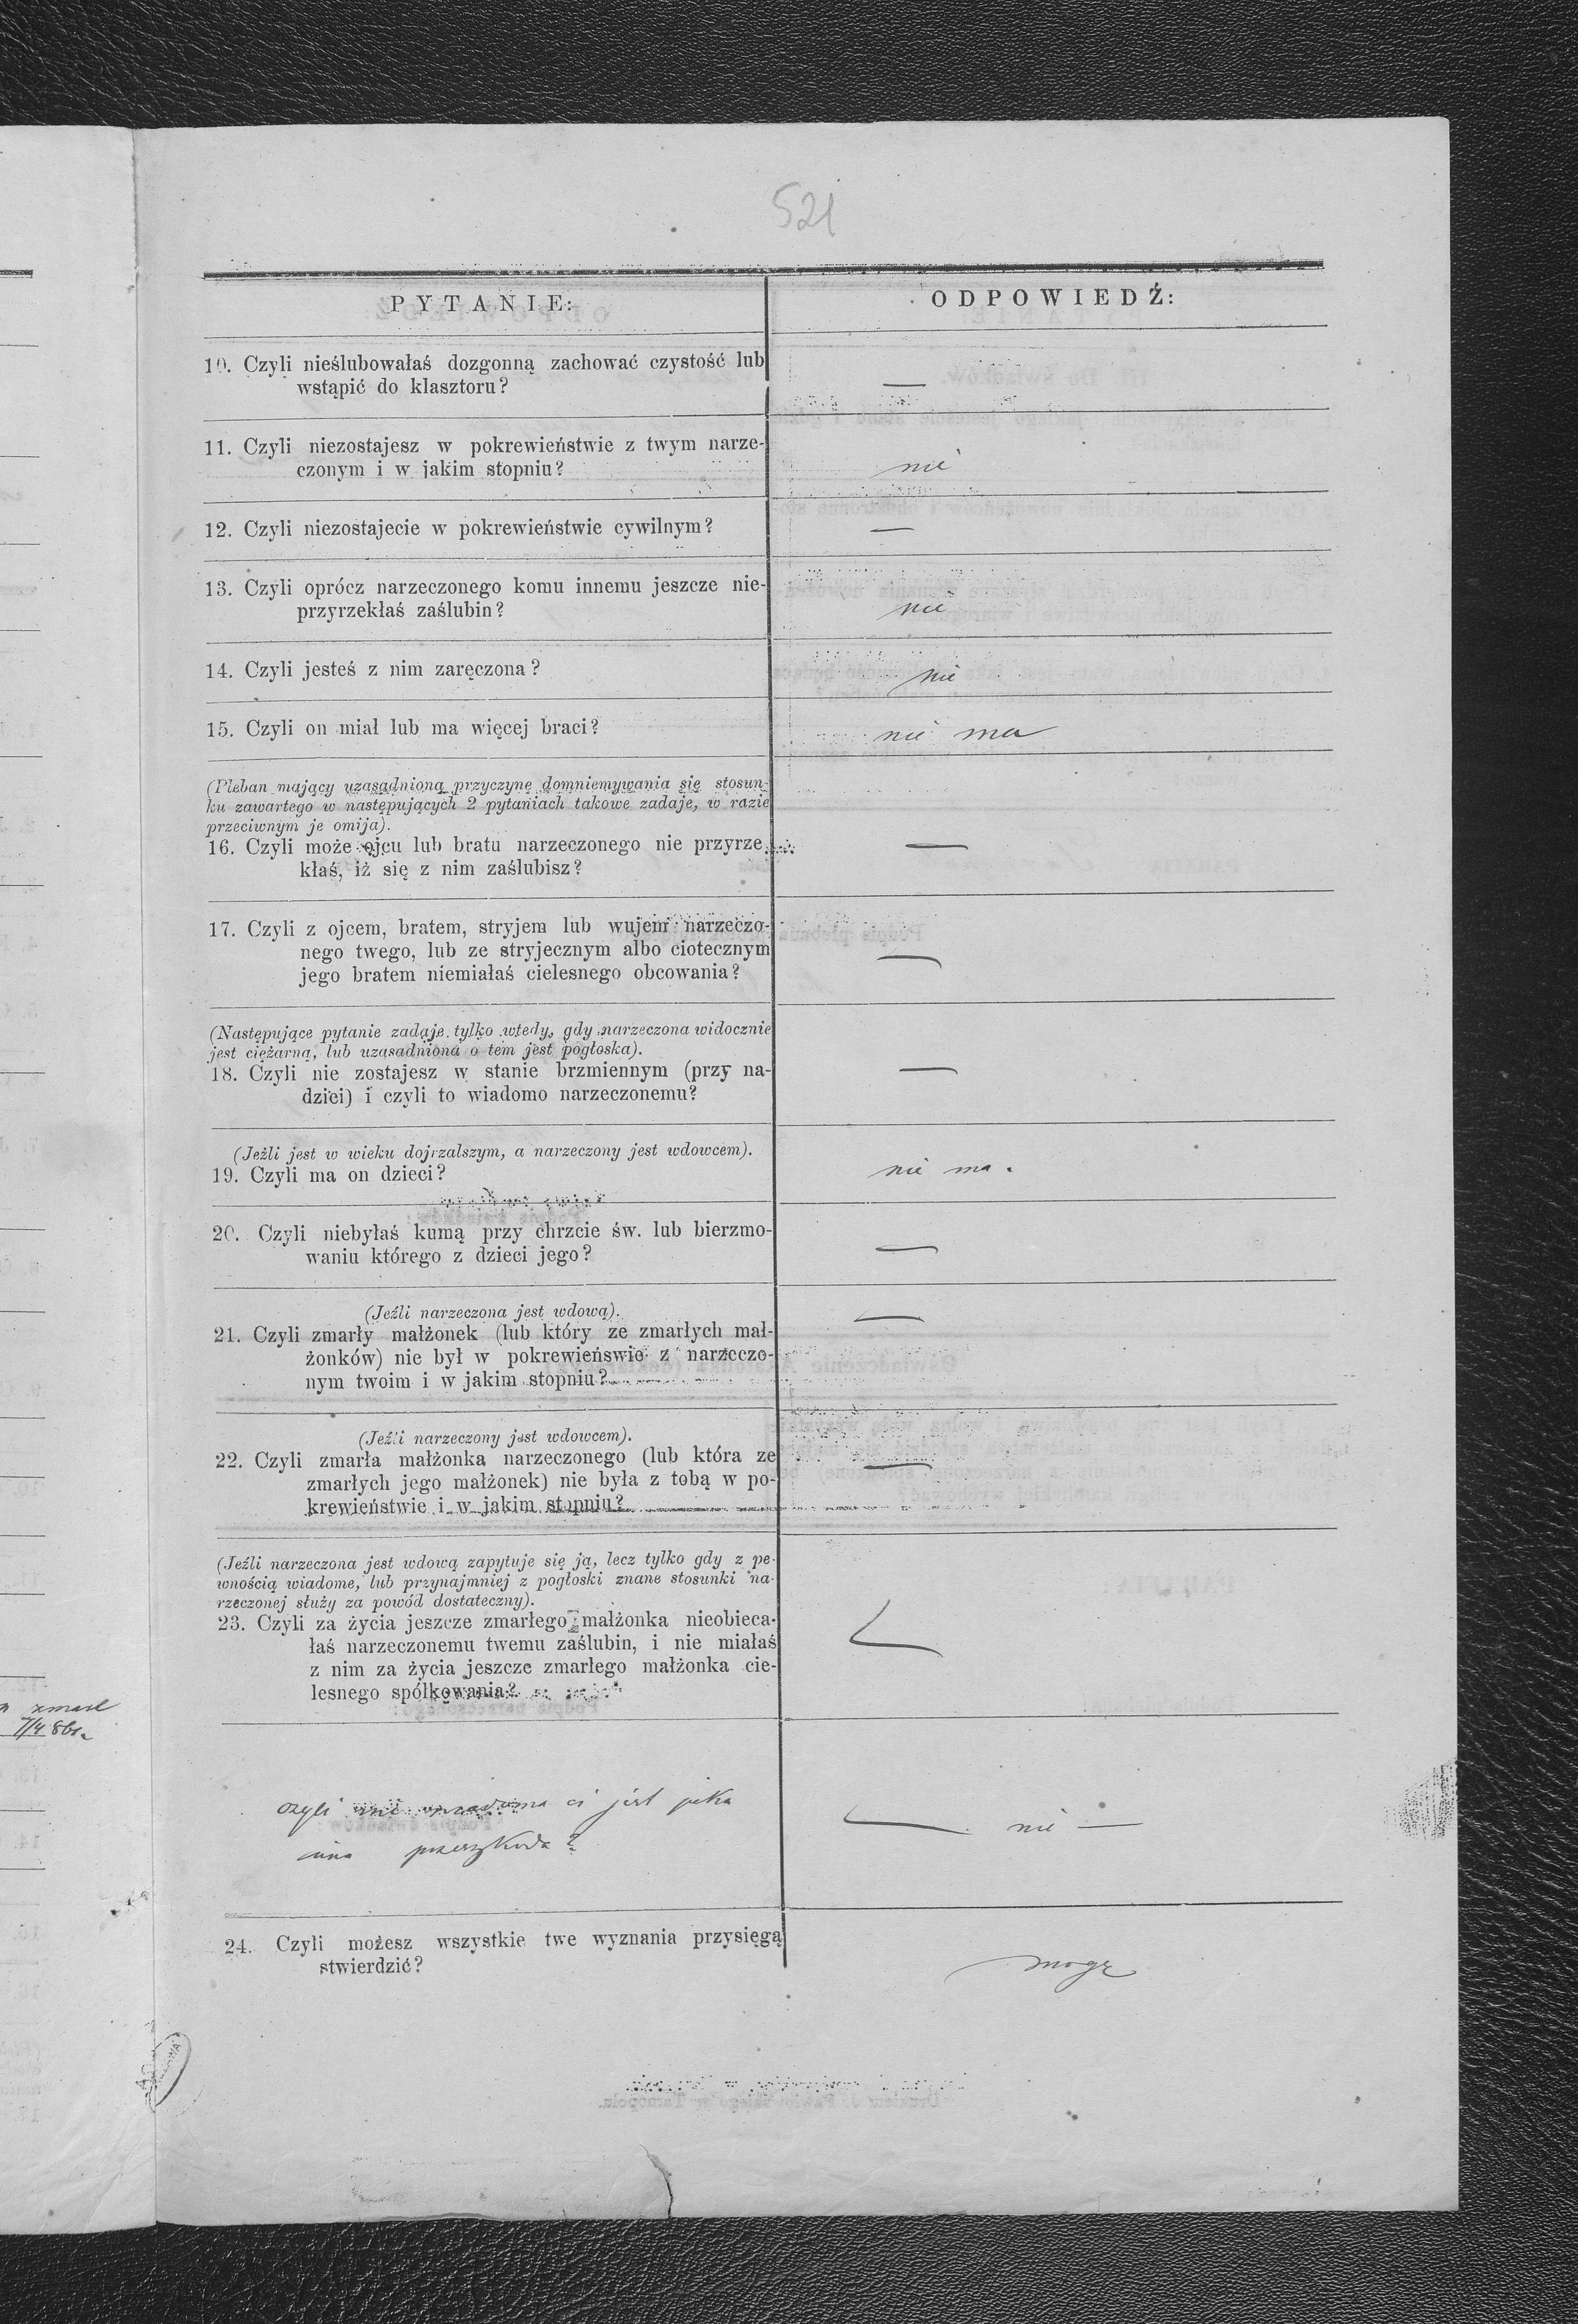 521
PYTANIE: ODPOWIEDŹ:
10. Czyli nieślubowałaś dozgonną zachować czystość lub
wstąpić do klasztoru? —
11. Czyli niezostajesz w pokrewieństwie z twym narze-
czonym i w jakim stopniu? nie
12. Czyli niezostajecie w pokrewieństwie cywilnym? —
13. Czyli oprócz narzeczonego komu innemu jeszcze nie-
przyrzekłaś zaślubin? nie
14. Czyli jesteś z nim zaręczona? nie
15. Czyli on miał lub ma więcej braci? nie ma
(Pleban mający uzasadnioną przyczynę domniemywania się stosun-
ku zawartego w następujących 2 pytaniach takowe zadaje, w razie
przeciwnym je omija).
16. Czyli może ojcu lub bratu narzeczonego nie przyrze-
kłaś, iż się z nim zaślubisz? —
17. Czyli z ojcem, bratem, stryjem lub wujem narzeczo-
nego twego, lub ze stryjecznym albo ciotecznym
jego bratem niemiałaś cielesnego obcowania? —
(Następujące pytanie zadaje tylko wtedy, gdy narzeczona widocznie
jest ciężarną, lub uzasadniona o tem jest pogłoska).
18. Czyli nie zostajesz w stanie brzmiennym (przy na-
dziei) i czyli to wiadomo narzeczonemu? —
(Jeżli jest w wieku dojrzalszym, a narzeczony jest wdowcem).
19. Czyli ma on dzieci? nie ma.
20. Czyli niebyłaś kumą przy chrzcie św. lub bierzmo-
waniu którego z dzieci jego? —
(Jeźli narzeczona jest wdową).
21. Czyli zmarły małżonek (lub który ze zmarłych mał-
żonków) nie był w pokrewieńswie z narzeczo-
nym twoim i w jakim stopniu? —
(Jeźli narzeczony jest wdowcem).
22. Czyli zmarła małżonka narzeczonego (lub która ze
zmarłych jego małżonek) nie była z tobą w po-
krewieństwie i w jakim stopniu? —
(Jeźli narzeczona jest wdową zapytuje się ją, lecz tylko gdy z pe-
wnością wiadome, lub przynajmniej z pogłoski znane stosunki na-
rzeczonej służy za powód dostateczny).
23. Czyli za życia jeszcze zmarłego małżonka nieobieca-
łaś narzeczonemu twemu zaślubin, i nie miałaś
z nim za życia jeszcze zmarłego małżonka cie-
lesnego spółkowania? —
zmarł
7/4 861
czyli nie wiadoma ci jest jaka
inna przeszkoda? — nie —
24. Czyli możesz wszystkie twe wyznania przysięgą
stwierdzić? mogę